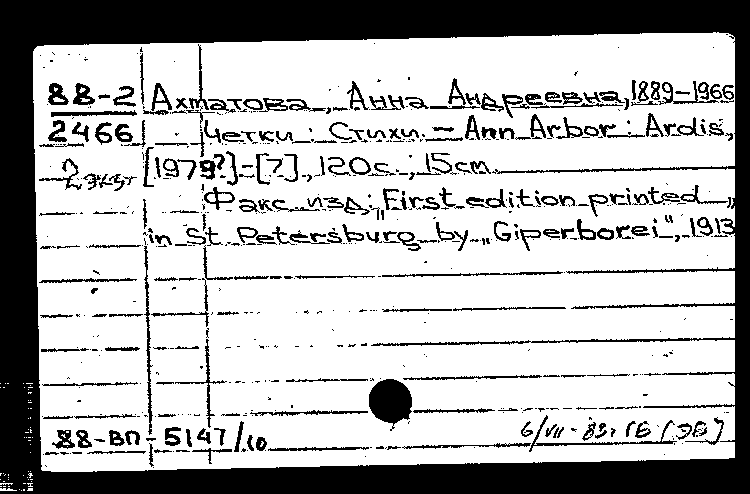 88-2 Ахматова, Анна Андреевна, 1889-1966
2466 Четки: Стихи. - Ann Arbor: Ardis,
2 экз [1979?]-[7]., 120с.; 15cm.
Факс. изд.: „First edition printed
in St. Petersburg by „Giperborei", 1913
88-ВП-5147/10